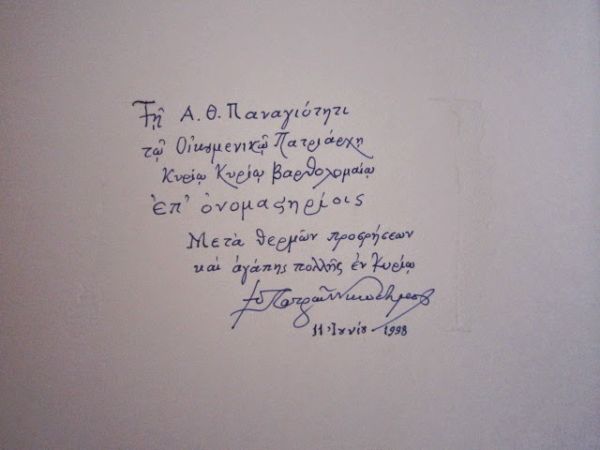 Τῇ Α. Θ. Παναγιότητι
τῷ Οἰκουμενικῷ Πατριάρχῃ
Κυρίῳ Κυρίῳ Βαρθολομαίῳ
ἐπ' ὀνομαστηρίοις
Μετὰ θερμῶν προσρήσεων
καὶ ἀγάπης πολλῆς ἐν Κυρίῳ
Πατρῶν Νικόδημος
11 Ἰουνίου 1998